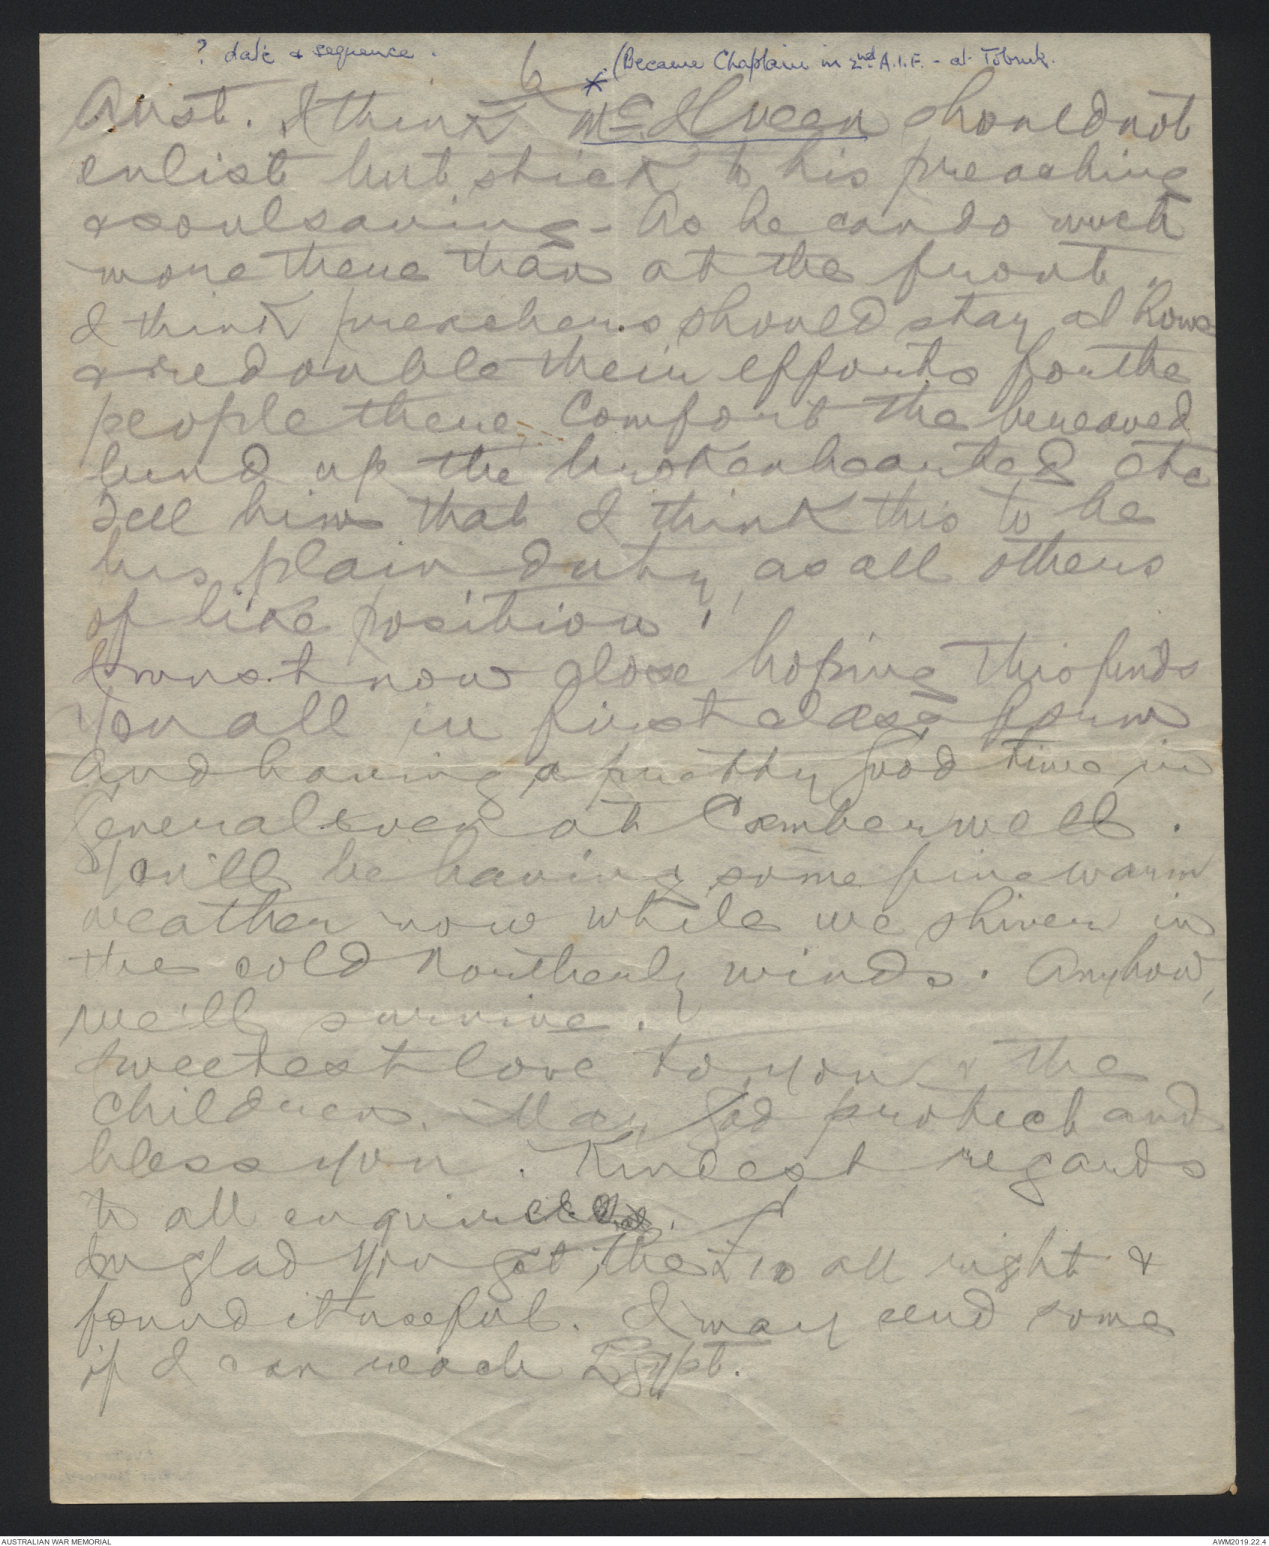 ? date & sequence.
6
* (Became Chaplain in 2nd A.I.F. - at Tobruk.
Aust. I think McIlveen should not
enlist but stick to his preaching
& soulsaving - As he can do much
more there than at the front.
I think preachers should stay at home
& redouble their efforts for the
people there. Comfort the bereaved
bind up the brokenhearted etc
Tell him that I think this to be
his plain duty, as all others
of like position!
I must now close hoping this finds
You all in first class form
And having a pretty good time in
General even at Camberwell.
You'll be having some fine warm
weather now while we shiver in
the cold Northerly winds. Anyhow,
we'll survive.
Sweetest love to you & the
Children. May God protect and
bless you. Kindest regards
to all enquirers.
Im glad You got the £10 all right &
found it useful. I may send some
if I can reach Egypt.
AUSTRALIAN WAR MEMORIAL
AWM2019.22.4